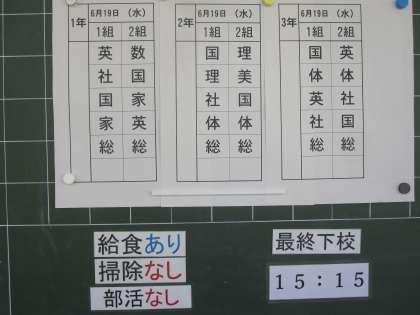 1年 6月19日 (水)
1組 2組
英 数
社 国
国 家
家 英
総 総
2年 6月19日 (水)
1組 2組
国 理
理 美
社 国
体 体
総 総
3年 6月19日 (水)
1組 2組
国 英
体 体
英 社
社 国
総 総
給食あり
掃除なし
部活なし
最終下校
15:15